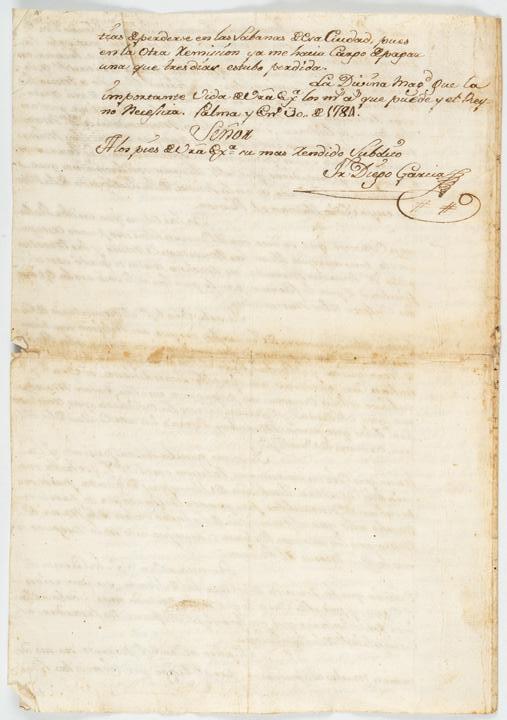 tras de perderse en las Sabanas de esa Ciudad, pues
en la Otra Remission ya me hacia Cargo de pagar
una, que tres dias estubo perdida.
La Divina Magd. que la
importante Vida de Vra Exa. los ms. as. que puede y el Rey
no Necesita. Palma y Eno. 30. de 1781.
Señor
A los pies de Vra Exa. su mas Rendido Subdito
Fr. Diego Garcia